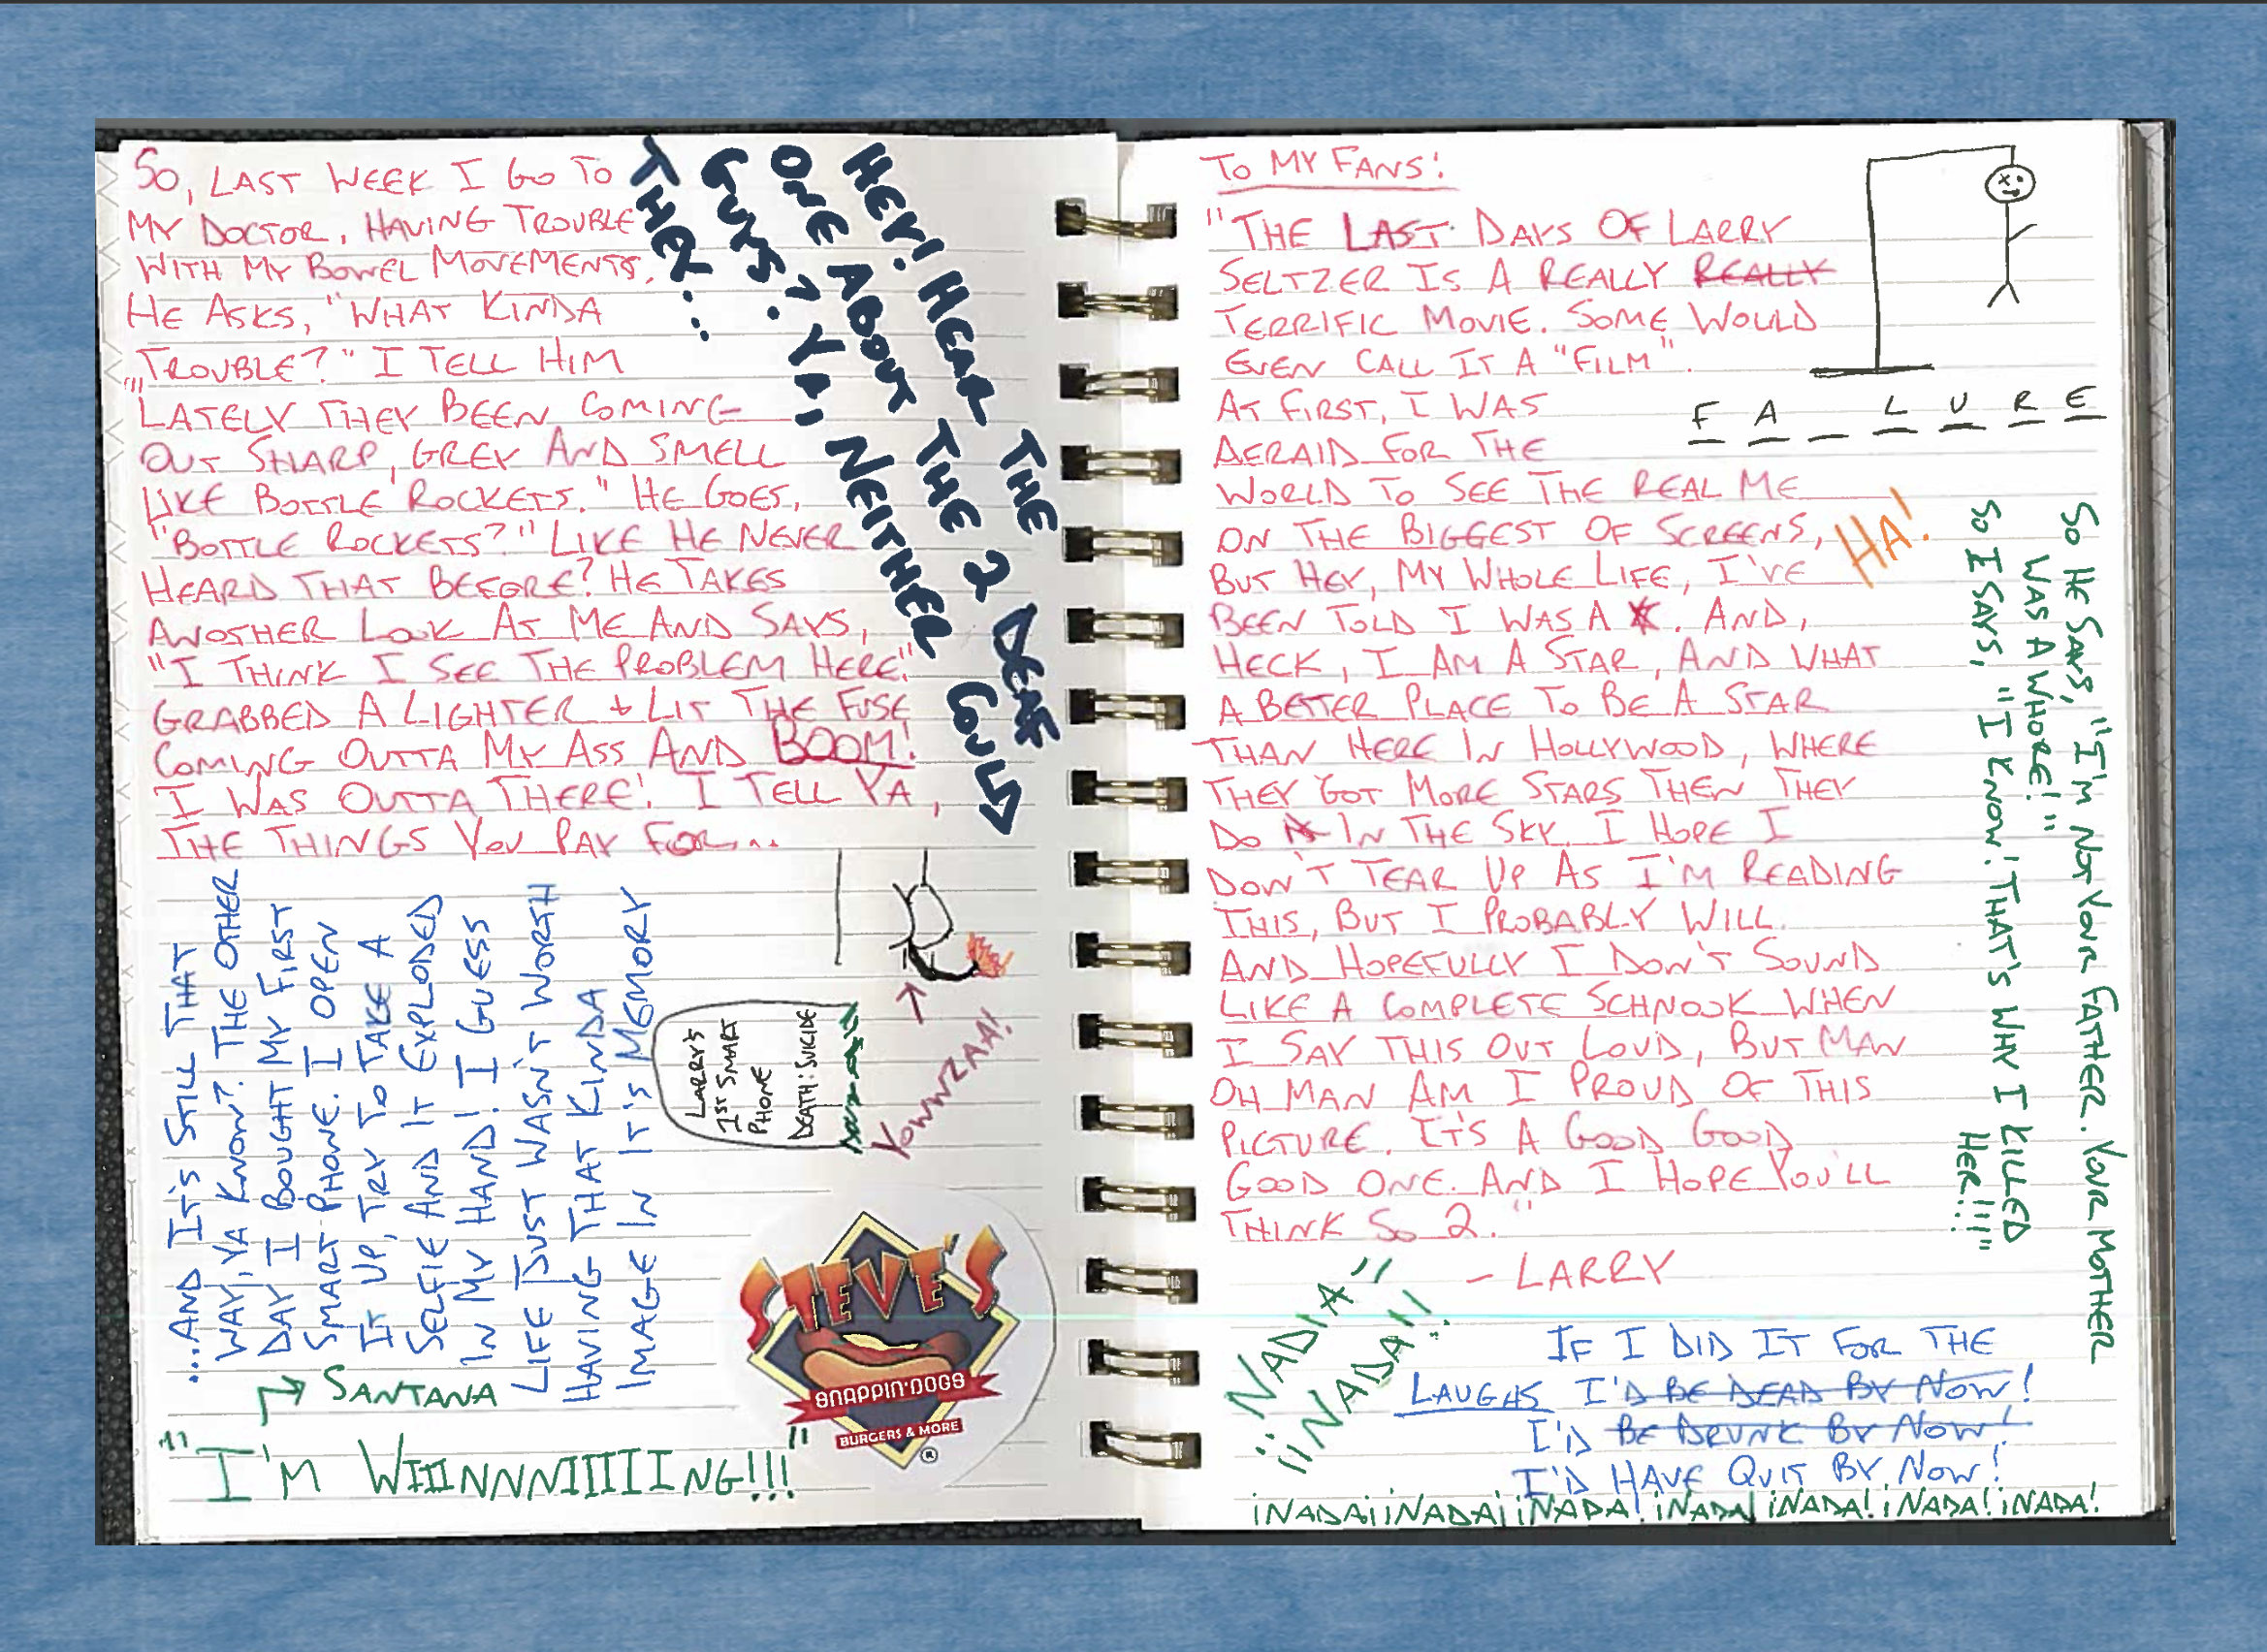 So, LAST WEEK I GO TO
MY DOCTOR, HAVING TROUBLE
WITH MY BOWEL MOVEMENTS.
HE ASKS, "WHAT KINDA
TROUBLE?" I TELL HIM
"LATELY THEY BEEN COMING
OUT SHARP, GREY AND SMELL
LIKE BOTTLE ROCKETS." HE GOES,
"BOTTLE ROCKETS?" LIKE HE NEVER
HEARD THAT BEFORE? HE TAKES
ANOTHER LOOK AT ME AND SAYS,
"I THINK I SEE THE PROBLEM HERE."
GRABBED A LIGHTER & LIT THE FUSE
COMING OUTTA MY ASS AND BOOM!
I WAS OUTTA THERE! I TELL YA,
THE THINGS YOU PAY FOR...
HEY! HEAR THE
ONE ABOUT THE 2 DEAF
GUYS? YA, NEITHER COULD
THEY...
...AND IT'S STILL THAT
WAY, YA KNOW? THE OTHER
DAY I BOUGHT MY FIRST
SMART PHONE. I OPEN
IT UP, TRY TO TAKE A
SELFIE AND IT EXPLODED
IN MY HAND! I GUESS
LIFE JUST WASN'T WORTH
HAVING THAT KINDA
IMAGE IN IT'S MEMORY
LARRY'S
1ST SMART
PHONE
DEATH: SUICIDE
YOWWZAA!
STEVE'S
SNAPPIN'DOGS
BURGERS & MORE
®
SANTANA
"I'M WIIINNNNIIIIIING!!!"
TO MY FANS:
"THE LAST DAYS OF LARRY
SELTZER IS A REALLY REALLY
TERRIFIC MOVIE. SOME WOULD
EVEN CALL IT A "FILM".
AT FIRST, I WAS
AFRAID FOR THE
WORLD TO SEE THE REAL ME
ON THE BIGGEST OF SCREENS,
BUT HEY, MY WHOLE LIFE, I'VE
BEEN TOLD I WAS A ★. AND,
HECK, I AM A STAR, AND WHAT
A BETTER PLACE TO BE A STAR
THAN HERE IN HOLLYWOOD, WHERE
THEY GOT MORE STARS THEN THEY
DO IN THE SKY. I HOPE I
DON'T TEAR UP AS I'M READING
THIS, BUT I PROBABLY WILL.
AND HOPEFULLY I DON'T SOUND
LIKE A COMPLETE SCHNOOK WHEN
I SAY THIS OUT LOUD, BUT MAN
OH MAN AM I PROUD OF THIS
PICTURE. IT'S A GOOD GOOD
GOOD ONE. AND I HOPE YOU'LL
THINK SO 2."
- LARRY
F A _ L U R E
HA!
SO HE SAYS, "I'M NOT YOUR FATHER. YOUR MOTHER
WAS A WHORE!"
SO I SAYS, "I KNOW! THAT'S WHY I KILLED
HER!!!"
¡NADIA!
¡¡NADA!!
IF I DID IT FOR THE
LAUGHS I'D BE DEAD BY NOW!
I'D BE DRUNK BY NOW!
I'D HAVE QUIT BY NOW!
¡NADA¡¡NADA¡¡NADA!¡NADA¡NADA!¡NADA!¡NADA!